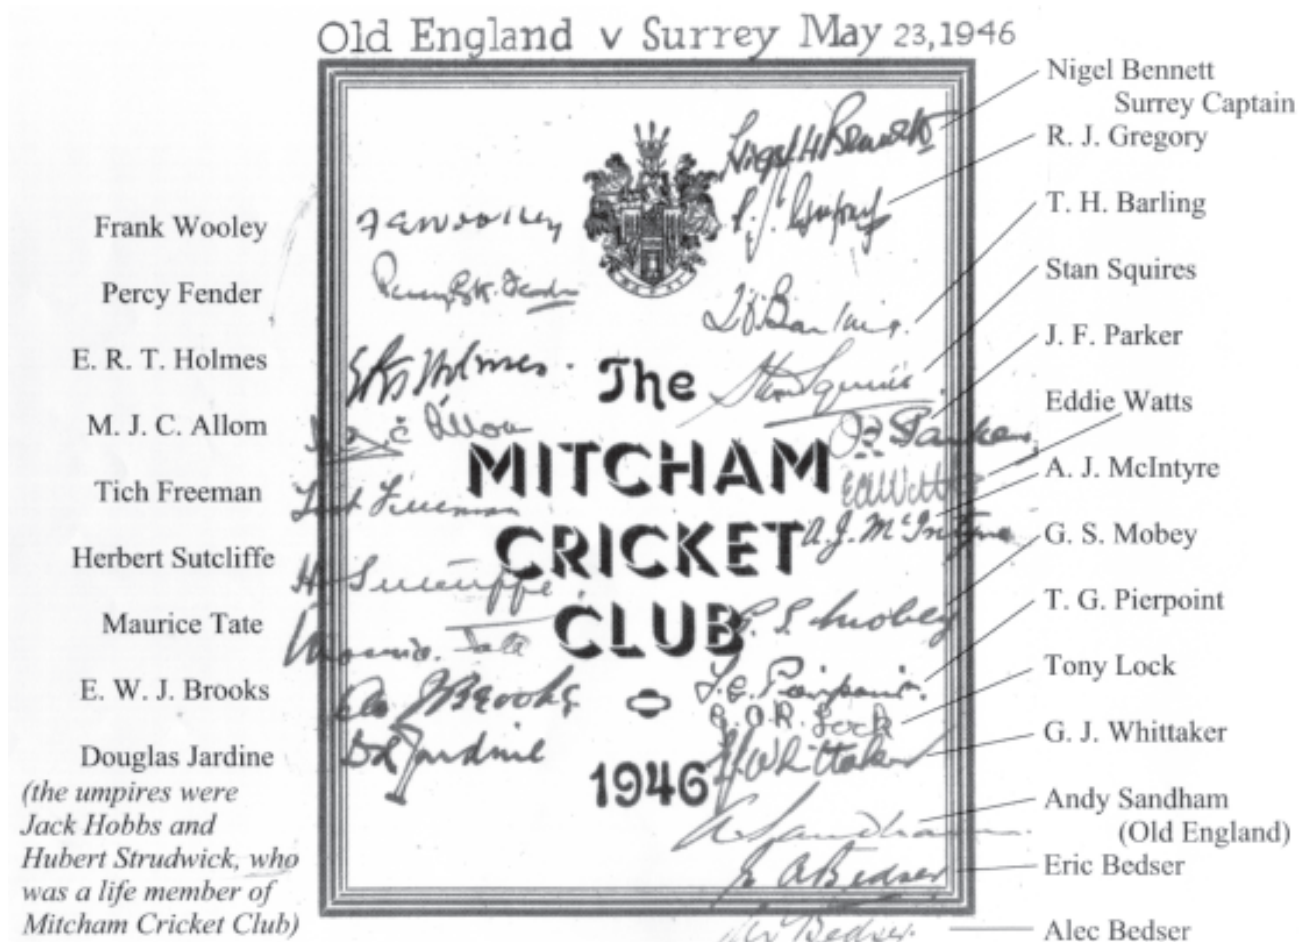 Old England v Surrey May 23, 1946
Frank Wooley
Percy Fender
E. R. T. Holmes
M. J. C. Allom
Tich Freeman
Herbert Sutcliffe
Maurice Tate
E. W. J. Brooks
Douglas Jardine
(the umpires were
Jack Hobbs and
Hubert Strudwick, who
was a life member of
Mitcham Cricket Club)
FEWoolley
Percy G.K. Fender
Holmes.
J. C. Allom
Tich Freeman
H Sutcliffe
Maurice Tate
J Brooks
D R Jardine
The
MITCHAM
CRICKET
CLUB
1946
Nigel H Bennett
R. J. Gregory
T H Barling.
Stan Squires.
J F Parker
E A Watts
A. J. McIntyre
G. S. Mobey
G. A. R. Lock
G J Whittaker
A Sandham
E A Bedser
A V Bedser.
Nigel Bennett
Surrey Captain
R. J. Gregory
T. H. Barling
Stan Squires
J. F. Parker
Eddie Watts
A. J. McIntyre
G. S. Mobey
T. G. Pierpoint
Tony Lock
G. J. Whittaker
Andy Sandham
(Old England)
Eric Bedser
Alec Bedser